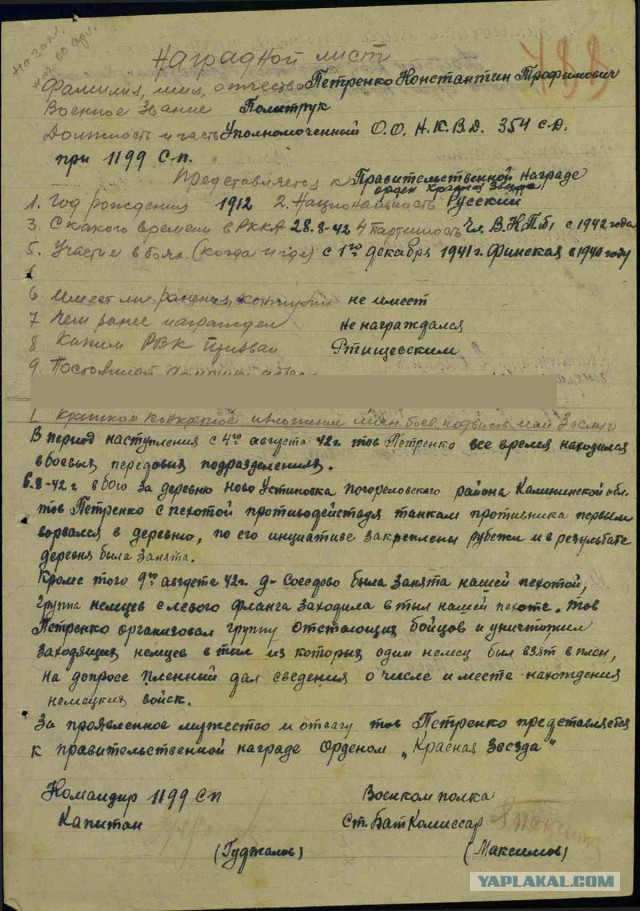 Наградной лист
Фамилия, имя, отчество Петренко Константин Трофимович
Военное звание Политрук
Должность и часть Уполномоченный О.О. Н.К.В.Д. 354 с.д.
при 1199 с.п.
Представляется к Правительственной награде
орден Красная Звезда
1. Год рождения 1912 2. Национальность Русский
3. С какого времени в РККА 28.8-42 4 Партийность чл. В.К.П.б, с 1942 года
5. Участие в боях (когда и где) с 1го декабря 1941г. Финская в 1940 году
6 Имеет ли ранения, контузии не имеет
7 Чем ранее награжден не награждался
8 Каким РВК призван Ртищевским
9. Постоянный домашний адрес
1. Краткое конкретное изложение личн. боев. подвига или заслуг
В период наступления с 4го августа 42г. тов Петренко все время находился
в боевых передовых подразделениях.
6.8-42 г в бою за деревню Ново Устиновка Погореловского района Калининской обл.
тов Петренко с пехотой противодействуя танкам противника первым
ворвался в деревню, по его инициативе закреплены рубежи и в результате
деревня была занята.
Кроме того 9го августа 42г. д- Соседово была занята нашей пехотой,
группа немцев с левого фланга заходила в тыл нашей пехоте. тов
Петренко организовал группу отстающих бойцов и уничтожил
заходящих немцев в тыл из которых один немец был взят в плен,
на допросе пленный дал сведения о числе и месте-нахождения
немецких войск.
За проявленное мужество и отвагу тов Петренко представляется
к правительственной награде Орденом „Красная Звезда"
Командир 1199 СП Военком полка
Капитан Ст. Бат Комиссар
(Гуджалов) (Максимов)
YAPLAKAL.COM